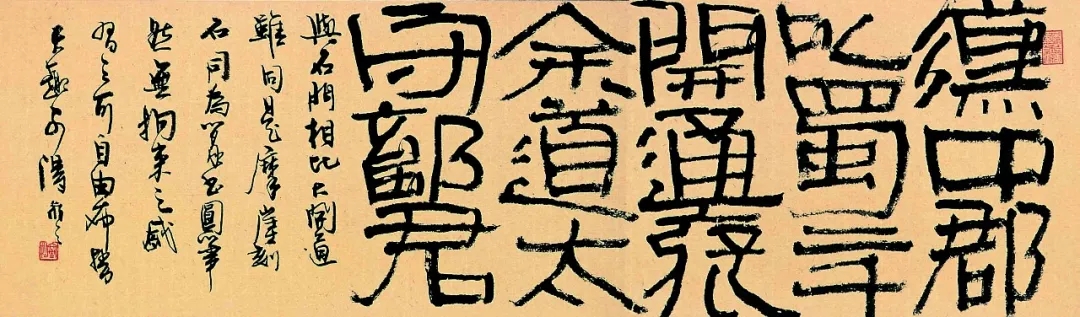 漢中郡
以蜀
開通褒
余道太
守鄐君
與石門相比大開通
雖同是摩崖刻
石同為圓筆
然無拘束之感
習之可自由布勢
趣可得